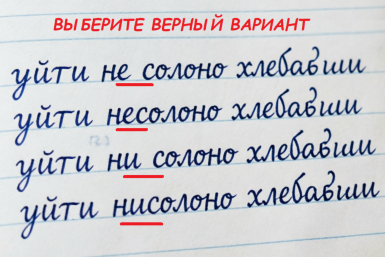 ВЫБЕРИТЕ ВЕРНЫЙ ВАРИАНТ
уйти не солоно хлебавши
уйти несолоно хлебавши
уйти ни солоно хлебавши
уйти нисолоно хлебавши